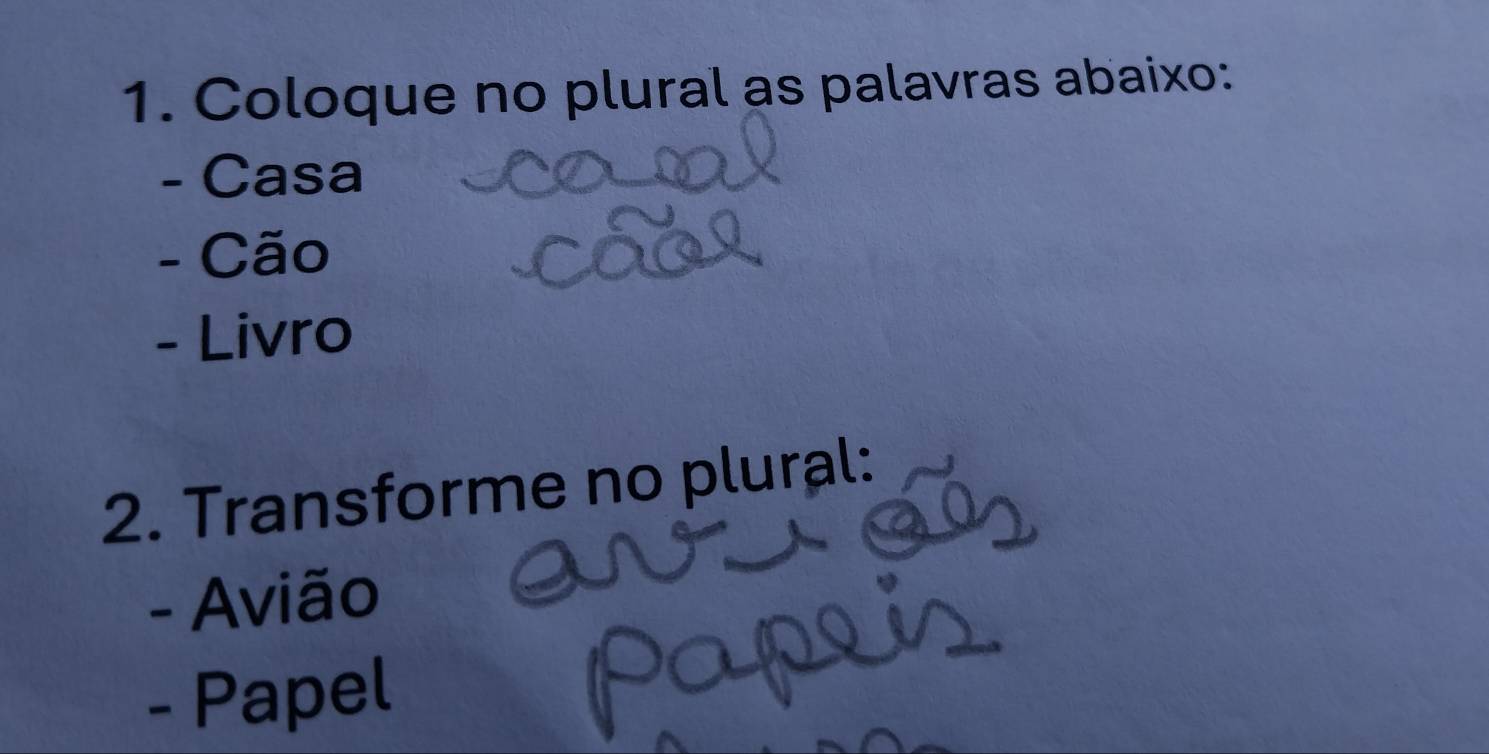 1. Coloque no plural as palavras abaixo:
- Casa casal
- Cão cãoe
- Livro
2. Transforme no plural:
- Avião aviões
- Papel papeis